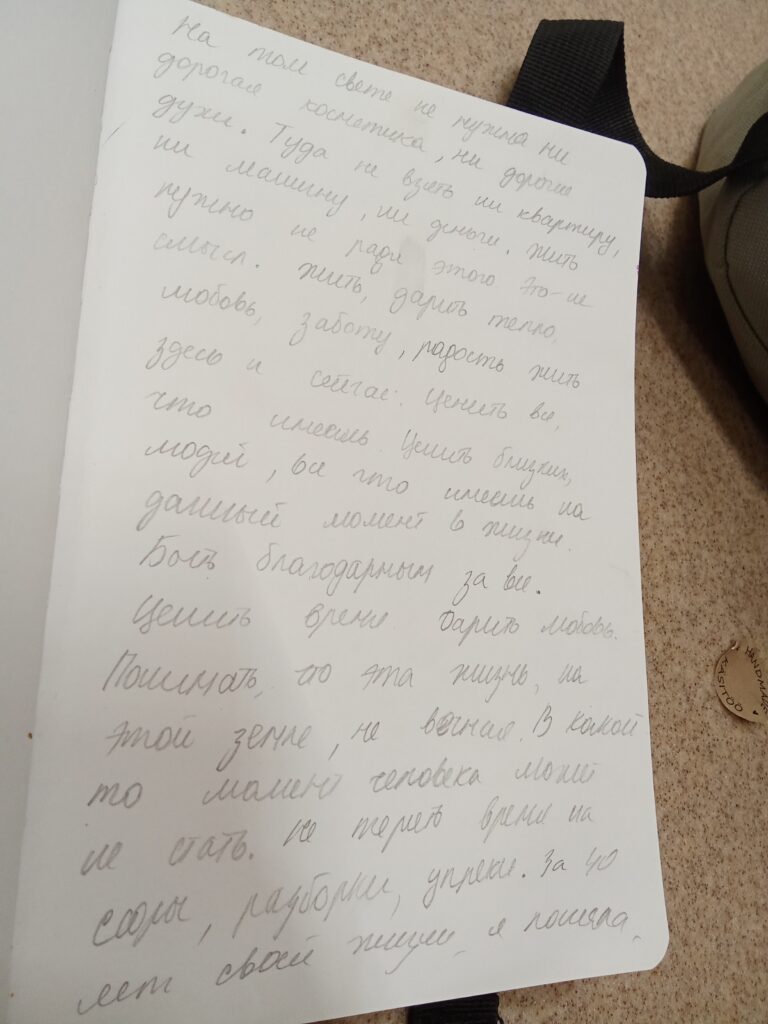 На том свете не нужна ни
дорогая косметика, ни дорогие
духи. Туда не взять ни квартиру,
ни машину, ни деньги. Жить
нужно не ради этого. Это не
смысл. Жить, дарить тепло,
любовь, заботу, радость жить
здесь и сейчас. Ценить все,
что имеешь. Ценить близких,
людей, все что имеешь на
данный момент в жизни.
Быть благодарным за все.
Ценить время. Дарить любовь.
Понимать, что эта жизнь, на
этой земле, не вечная. В какой
то момент человека может
не стать. Не терять время на
ссоры, разборки, упреки. За 40
лет своей жизни, я поняла.
HANDMADE